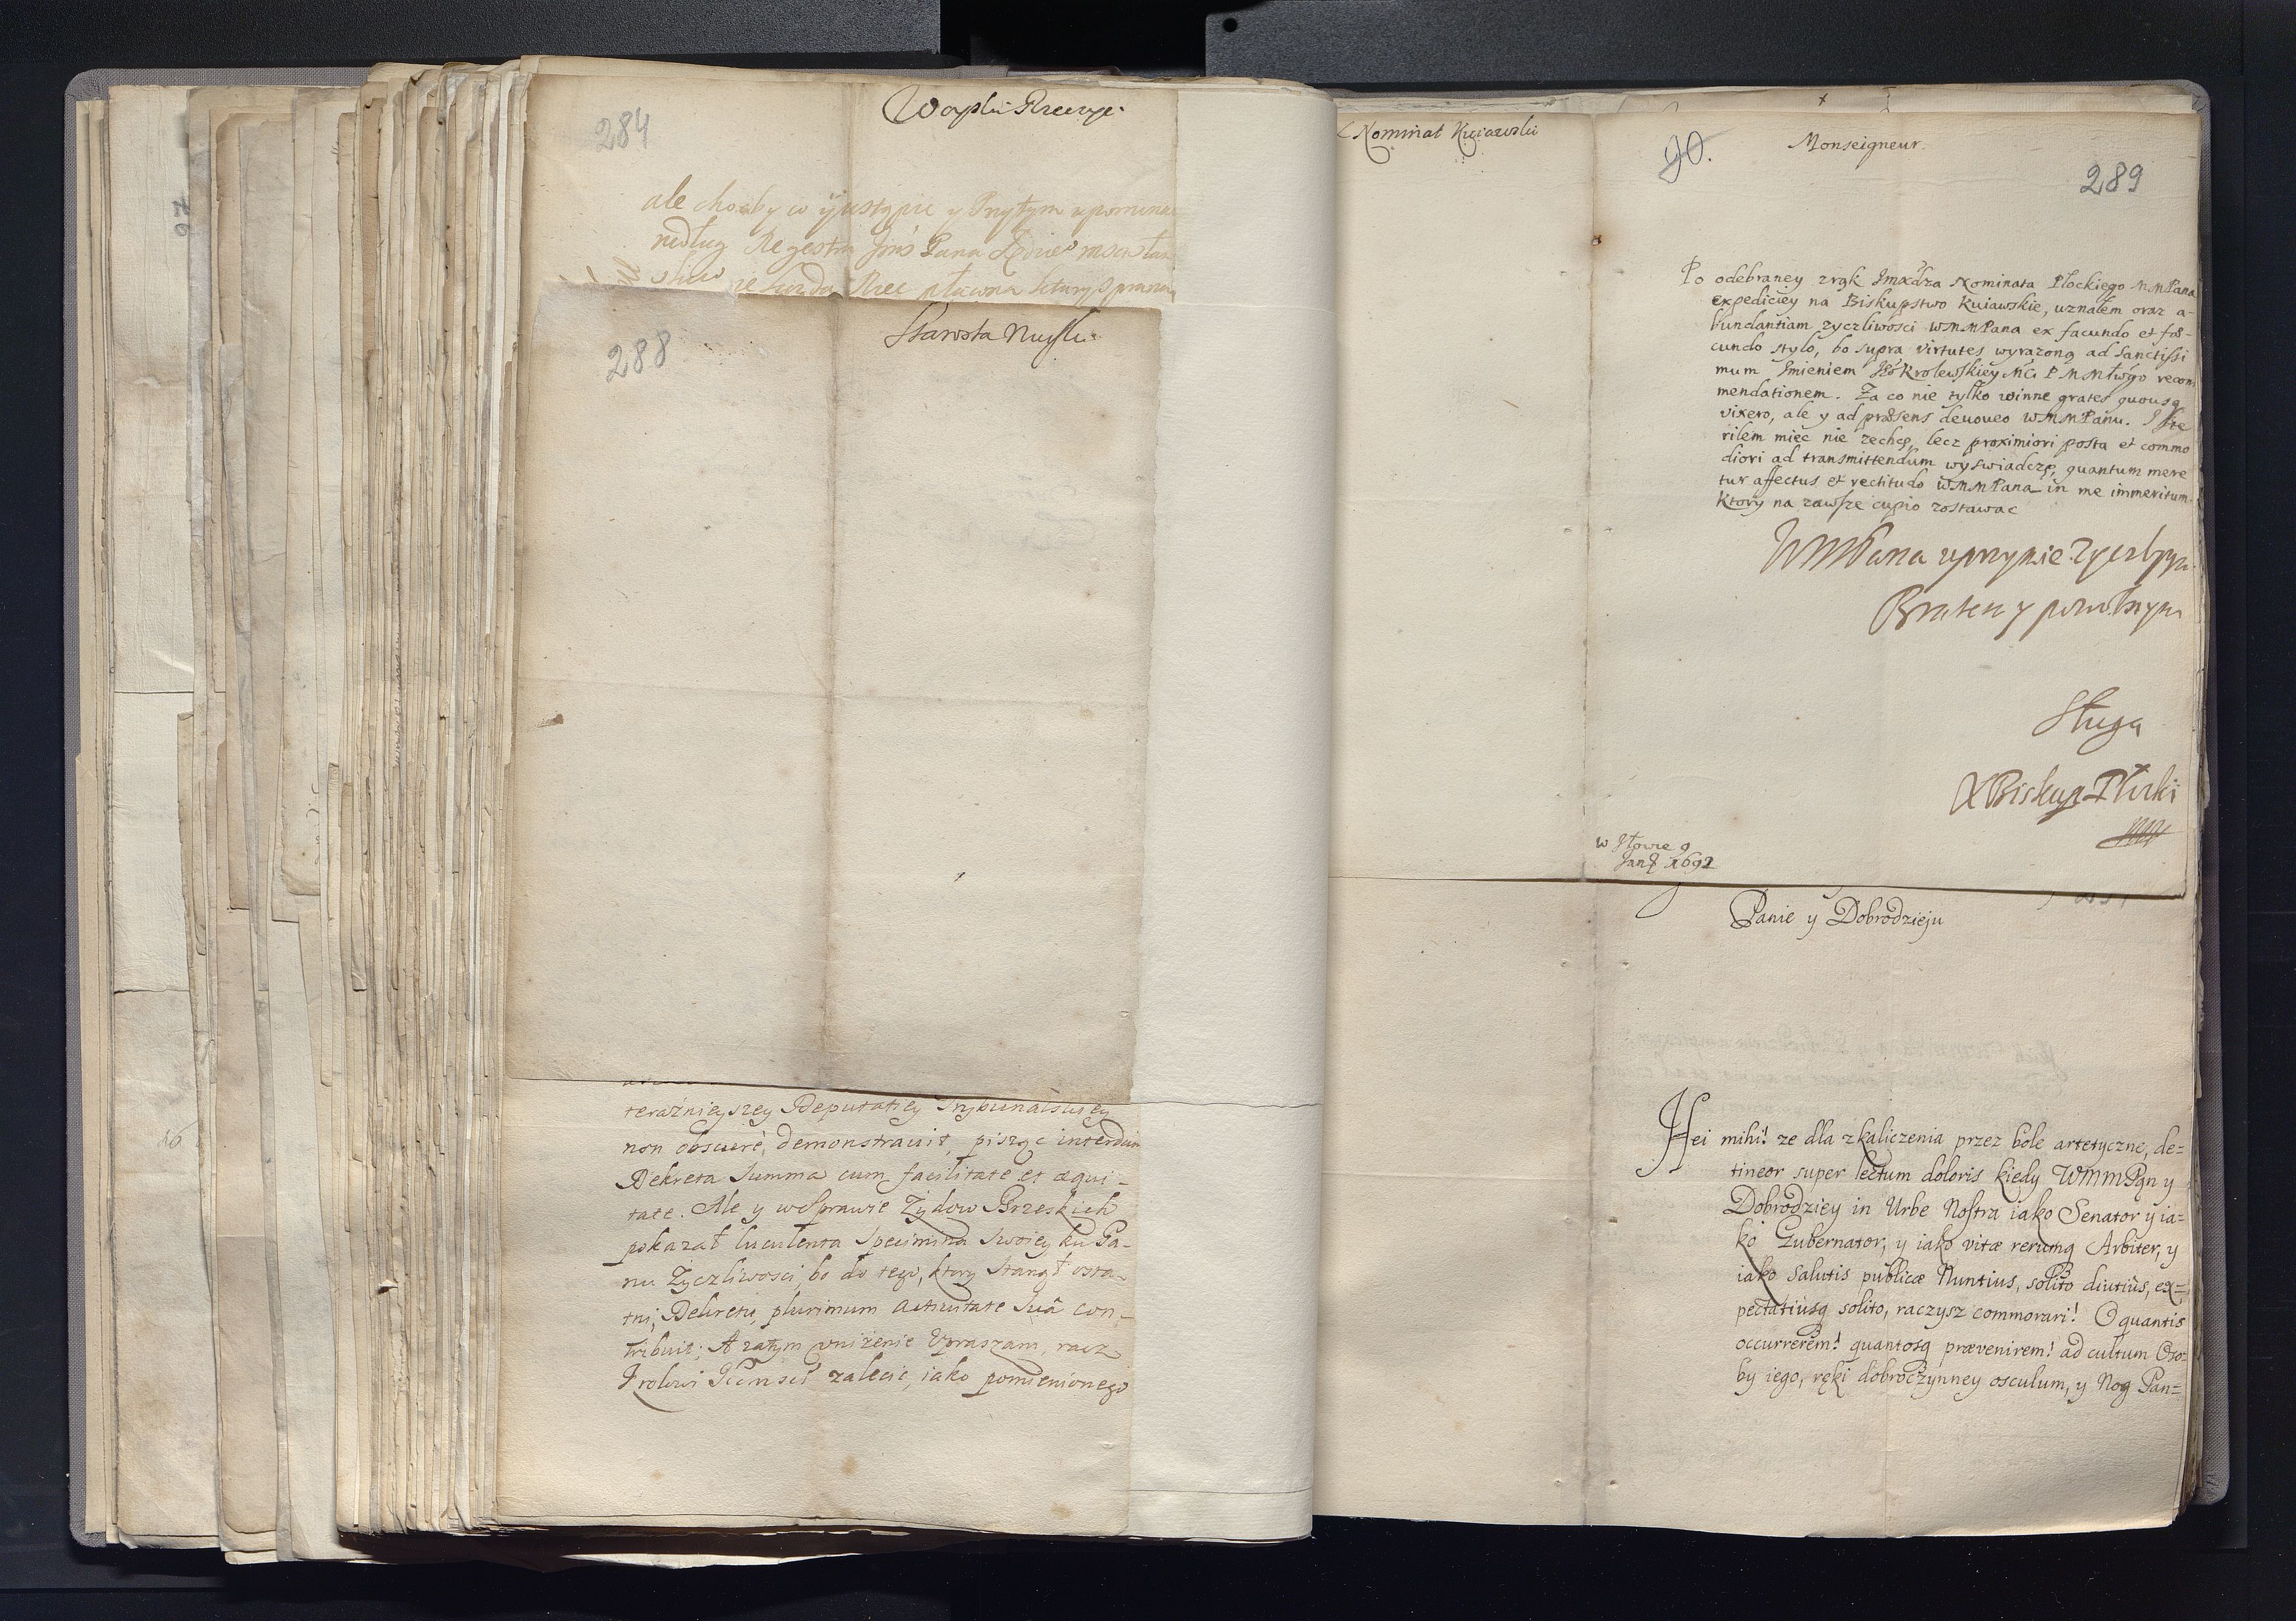 284
ale choćby co
Regestra Pana
288
Starosta
teraźnieyszey Deputatiey Trybunalskiey
non obscurè, demonstravit, pisząc interdum
Dekreta summa cum facilitate et æqui-
tate. Ale y w Sprawie Zydow Brzeskich
pokazał luculenta Specimina swoiey ku Pa-
nu Zyczliwosci, bo do tego, ktory stanął osta-
tni, Dekretu, plurimum activitate suâ con-
tribuit; A zatym uniżenie Upraszam, racz
Krolowi JeMsci zalecic, iako pomienionego
Nominat Kuiawski
90.
Monseigneur.
289
Po odebraney z rąk Imxdza Nominata Płockiego MMPana
expediciey na Biskupstwo Kuiawskie, uznałem oraz a-
bundantiam zyczliwosci WMMPana ex facundo et fœ-
cundo stylo, bo supra virtutes wyrazoną ad Sanctissi
mum Imieniem Krolewskiey recom
mendationem. Za co nie tylko winne grates quousq
vixero, ale y ad præsens devoveo WMMPanu. I ste
rilem miec nie zechcę, lecz proximiori posta et commo
diori ad transmittendum wyswiadczę, quantum mere
tur affectus et rectitudo WMMPana in me immeritum.
Ktory na zawsze cupio zostawac
WMMPana uprzymie zyczliwym
Bratem y powolnym
Sługą
X Biskup Płocki
w Iłowie 9
Jan 1692
Panie y Dobrodzieju
Hei mihi! ze dla zkaliczenia przez bole artetyczne, de=
tineor super lectum doloris kiedy WMMPan y
Dobrodziey in Urbe Nostra iako Senator y ia=
ko Gubernator, y iako vitæ rerumq Arbiter, y
iako Salutis publicæ Nuntius, solito diutius, ex=
pectatiusq solito, raczysz commorari! O quantis
occurrerem! quantosq prævenirem! ad cultum Oso=
by iego, ręki dobroczynney osculum, y Nog Pan=